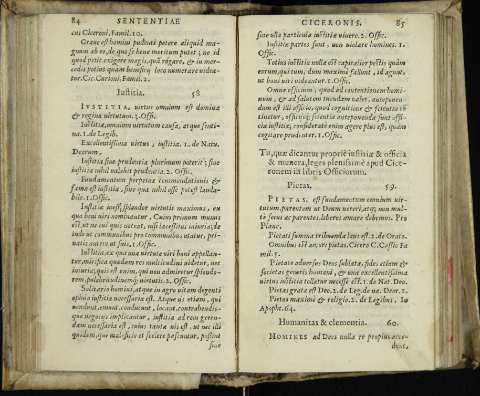 84 SENTENTIAE
cus Ciceroni. Famil. 10.
Graue est homini pudenti petere aliquid magnum
ab eo, de quo se bene meritum putet: ne id
quod petit exigere magis, quã rogare, & in mercedis
potius quam beneficij loco numerare videatur.
Cic. Curioni. Famil. 2.
Iustitia. 58
IVSTITIA, virtus omnium est domina
& regina virtutum. 3. Offi.
Iustitia, omnium virtutum causa, atque sententia.
1. de Legib.
Excellentissima virtus, iustitia. 1. de Natu.
Deorum.
Iustitia sine prudentia plurimum poterit: sine
iustitia nihil valebit prudentia. 2. Offic.
Fundamentum perpetuæ commendationis &
famæ est iustitia, sine qua nihil esse potest laudabile.
1. Offic.
In iustitia inest, splendor virtutis maximus, ex
qua boni viri nominantur. Cuius primum munus
est, ut ne cui quis noceat, nisi lacessitus iniuria, deinde
ut communibus pro communibus utatur, priuatis
autem ut suis. 1. Offic.
Iustitia, ex qua una virtute viri boni appellantur,
mirifica quædam res multitudini videtur, nec
iniuria, quis
2. Offic.
Solitario homini, atque in agro vitam degenti
opinio iustitiæ necessaria est. Atque iis etiam, qui
vendunt, emunt, conducunt, locant, contrahendisque
negotijs implicantur, iustitia ad rem gerendam
necessaria est, cuius tanta uis est, ut nec illi
quidem, qui maleficio et scelere pascuntur, possint
sine
CICERONIS. 85
sine ulla particula iustitiæ viuere. 2. Offic.
Iustitiæ partes sunt, non violare homines. 1.
Offic.
Totius iniustitiæ nulla est capitalior pestis quàm
eorum, qui tum, dum maximè fallunt, id agunt,
ut boni viri videantur. 1. Offic.
Omne officium, quod ad coniunctionem hominum,
& ad societatem tuendam valet, anteponendum
est illi officio, quod cognitione & scientia continetur,
officijs scientiæ anteponenda sunt officia
iustitiæ, considerate enim agere plus est, quàm
cogitare prudenter. 1. Offic.
Tu, quæ dicantur propriè iustitiæ & officia
& munera, leges plenissimè apud Ciceronem
in libris Officiorum.
Pietas. 59.
PIETAS, est fundamentum omnium virtutum.
parentem ut Deum vereri, atque
secus ac parentes liberos amare debemus. Pro
Planc.
Pietati summa tribuenda laus est. 2. de Orato.
Omnibus Cicero C. Cassio Famil. 5.
Pietate aduersus Deos sublata, fides etiam &
societas generis humani, & una excellentissima
virtus iustitia tollatur necesse est. 1. de Nat. Deo.
Pietas grata est Deo. 2. de Leg.
Pietas maxima & religio. 2. de Legibus.
64.
Humanitas & clementia. 60.
HOMINES ad Deos nulla re propius acce-
dunt,